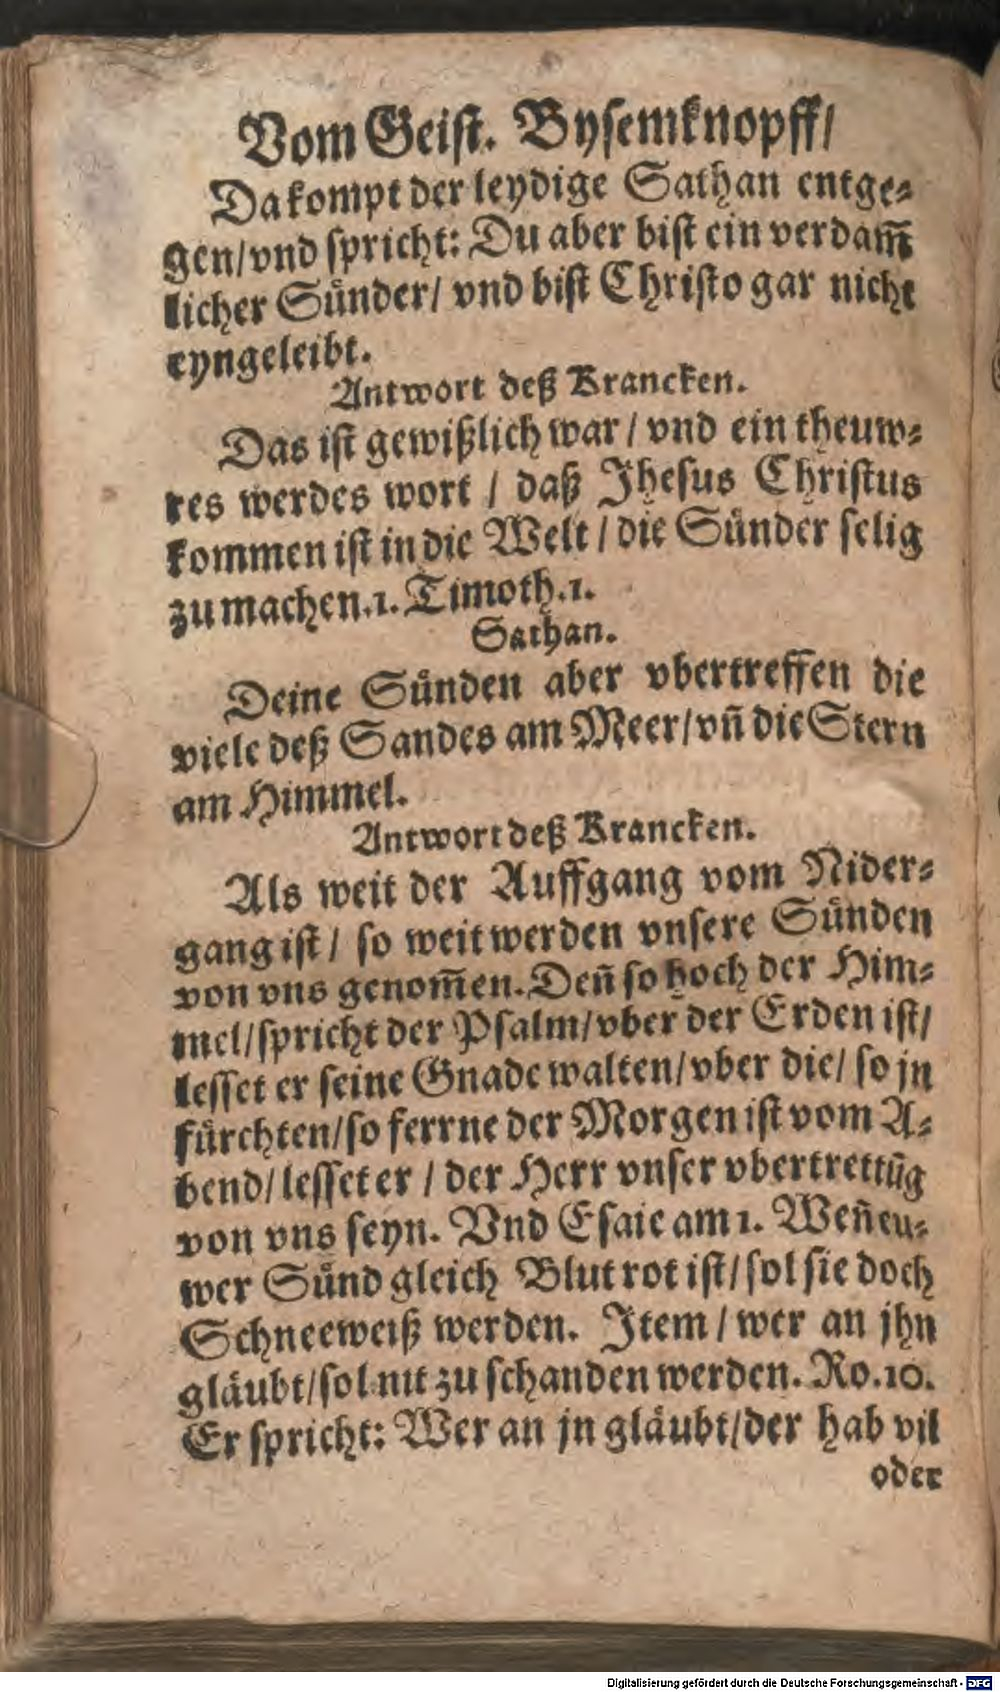 Vom Geiſt. Byſemknopff/
Da kompt der leydige Sathan entge⸗
gen/ vnd ſpricht: Du aber biſt ein verdam̄
licher Sünder/ vnd biſt Chriſto gar nicht
eyngeleibt.
Antwort deß Krancken.
Das iſt gewißlich war / vnd ein theuw⸗
res werdes wort / daß Jheſus Chriſtus
kommen iſt in die Welt / die Sünder ſelig
zu machen. 1. Timoth. 1.
Sathan.
Deine Sünden aber vbertreffen die
viele deß Sandes am Meer/ vn̄ die Stern
am Himmel.
Antwort deß Krancken.
Als weit der Auffgang vom Nider⸗
gang iſt / ſo weit werden vnſere Sünden
von vns genom̄en. Den̄ ſo hoch der Him⸗
mel/ ſpricht der Pſalm/ vber der Erden iſt/
leſſet er ſeine Gnade walten/ vber die/ ſo jn
fürchten/ ſo ferrne der Morgen iſt vom A⸗
bend/ leſſet er / der Herr vnſer vbertrettūg
von vns ſeyn. Vnd Eſaie am 1. Wen̄ eu⸗
wer Sünd gleich Blut rot iſt/ ſol ſie doch
Schneeweiß werden. Item / wer an jhn
gläubt/ ſol nit zu ſchanden werden. Ro. 10.
Er ſpricht: Wer an jn gläubt/ der hab vil
oder
Digitalisierung gefördert durch die Deutsche Forschungsgemeinschaft - DFG